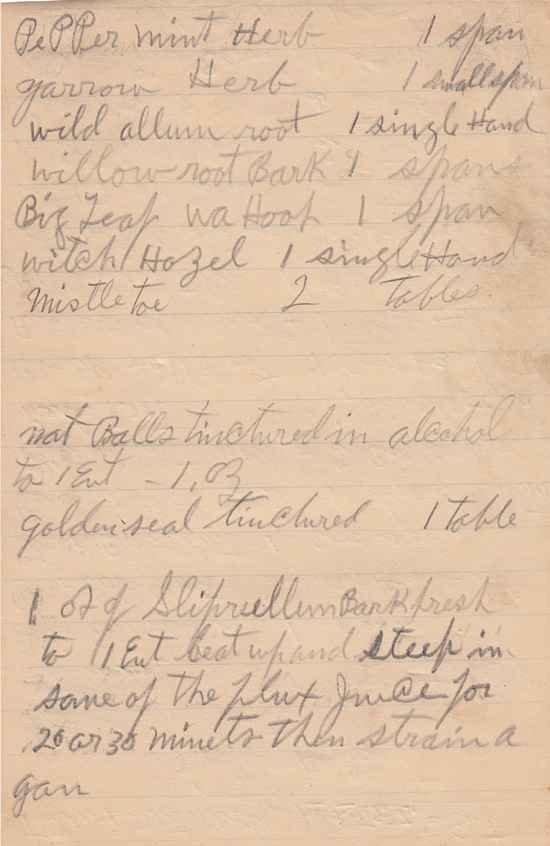 PePPer mint Herb 1 span
yarrow Herb 1 small span
wild allum root 1 single Hand
willow root Bark 1 span
Big Leaf wa Hoop 1 span
witch Hazel 1 single Hand
mistletoe 2 tables
nat Balls tinctured in alcohol
to 1 - 1, oz
golden seal tinctured 1 table
1 oz of Bark fresh
to 1 beat up and steep in
some of the Juice for
20 or 30 minets then strain a
gan